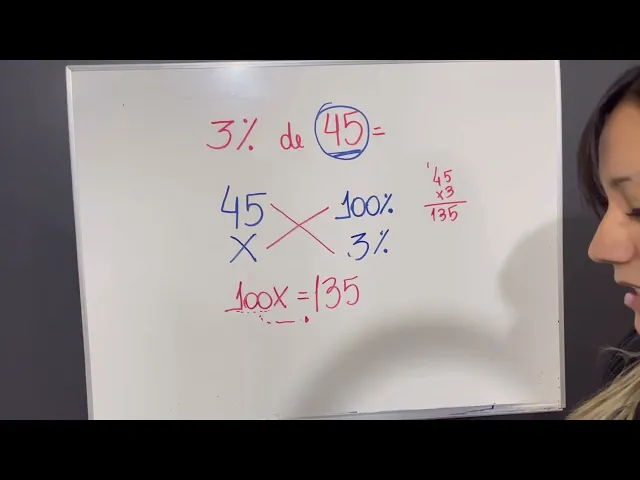 3% de 45 =
45 100%
X 3%
100X = 135
1
45
x3
135